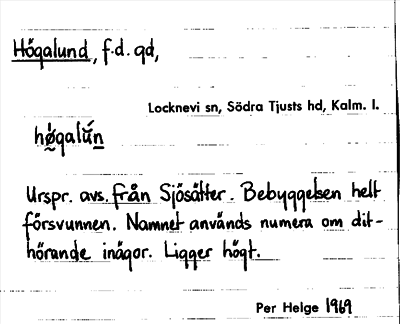 Högalund, f.d. gd,
Locknevi sn, Södra Tjusts hd, Kalm. l.
hø̀galún
Urspr. avs. från Sjösätter. Bebyggelsen helt
försvunnen. Namnet används numera om dit-
hörande inägor. Ligger högt.
Per Helge 1969